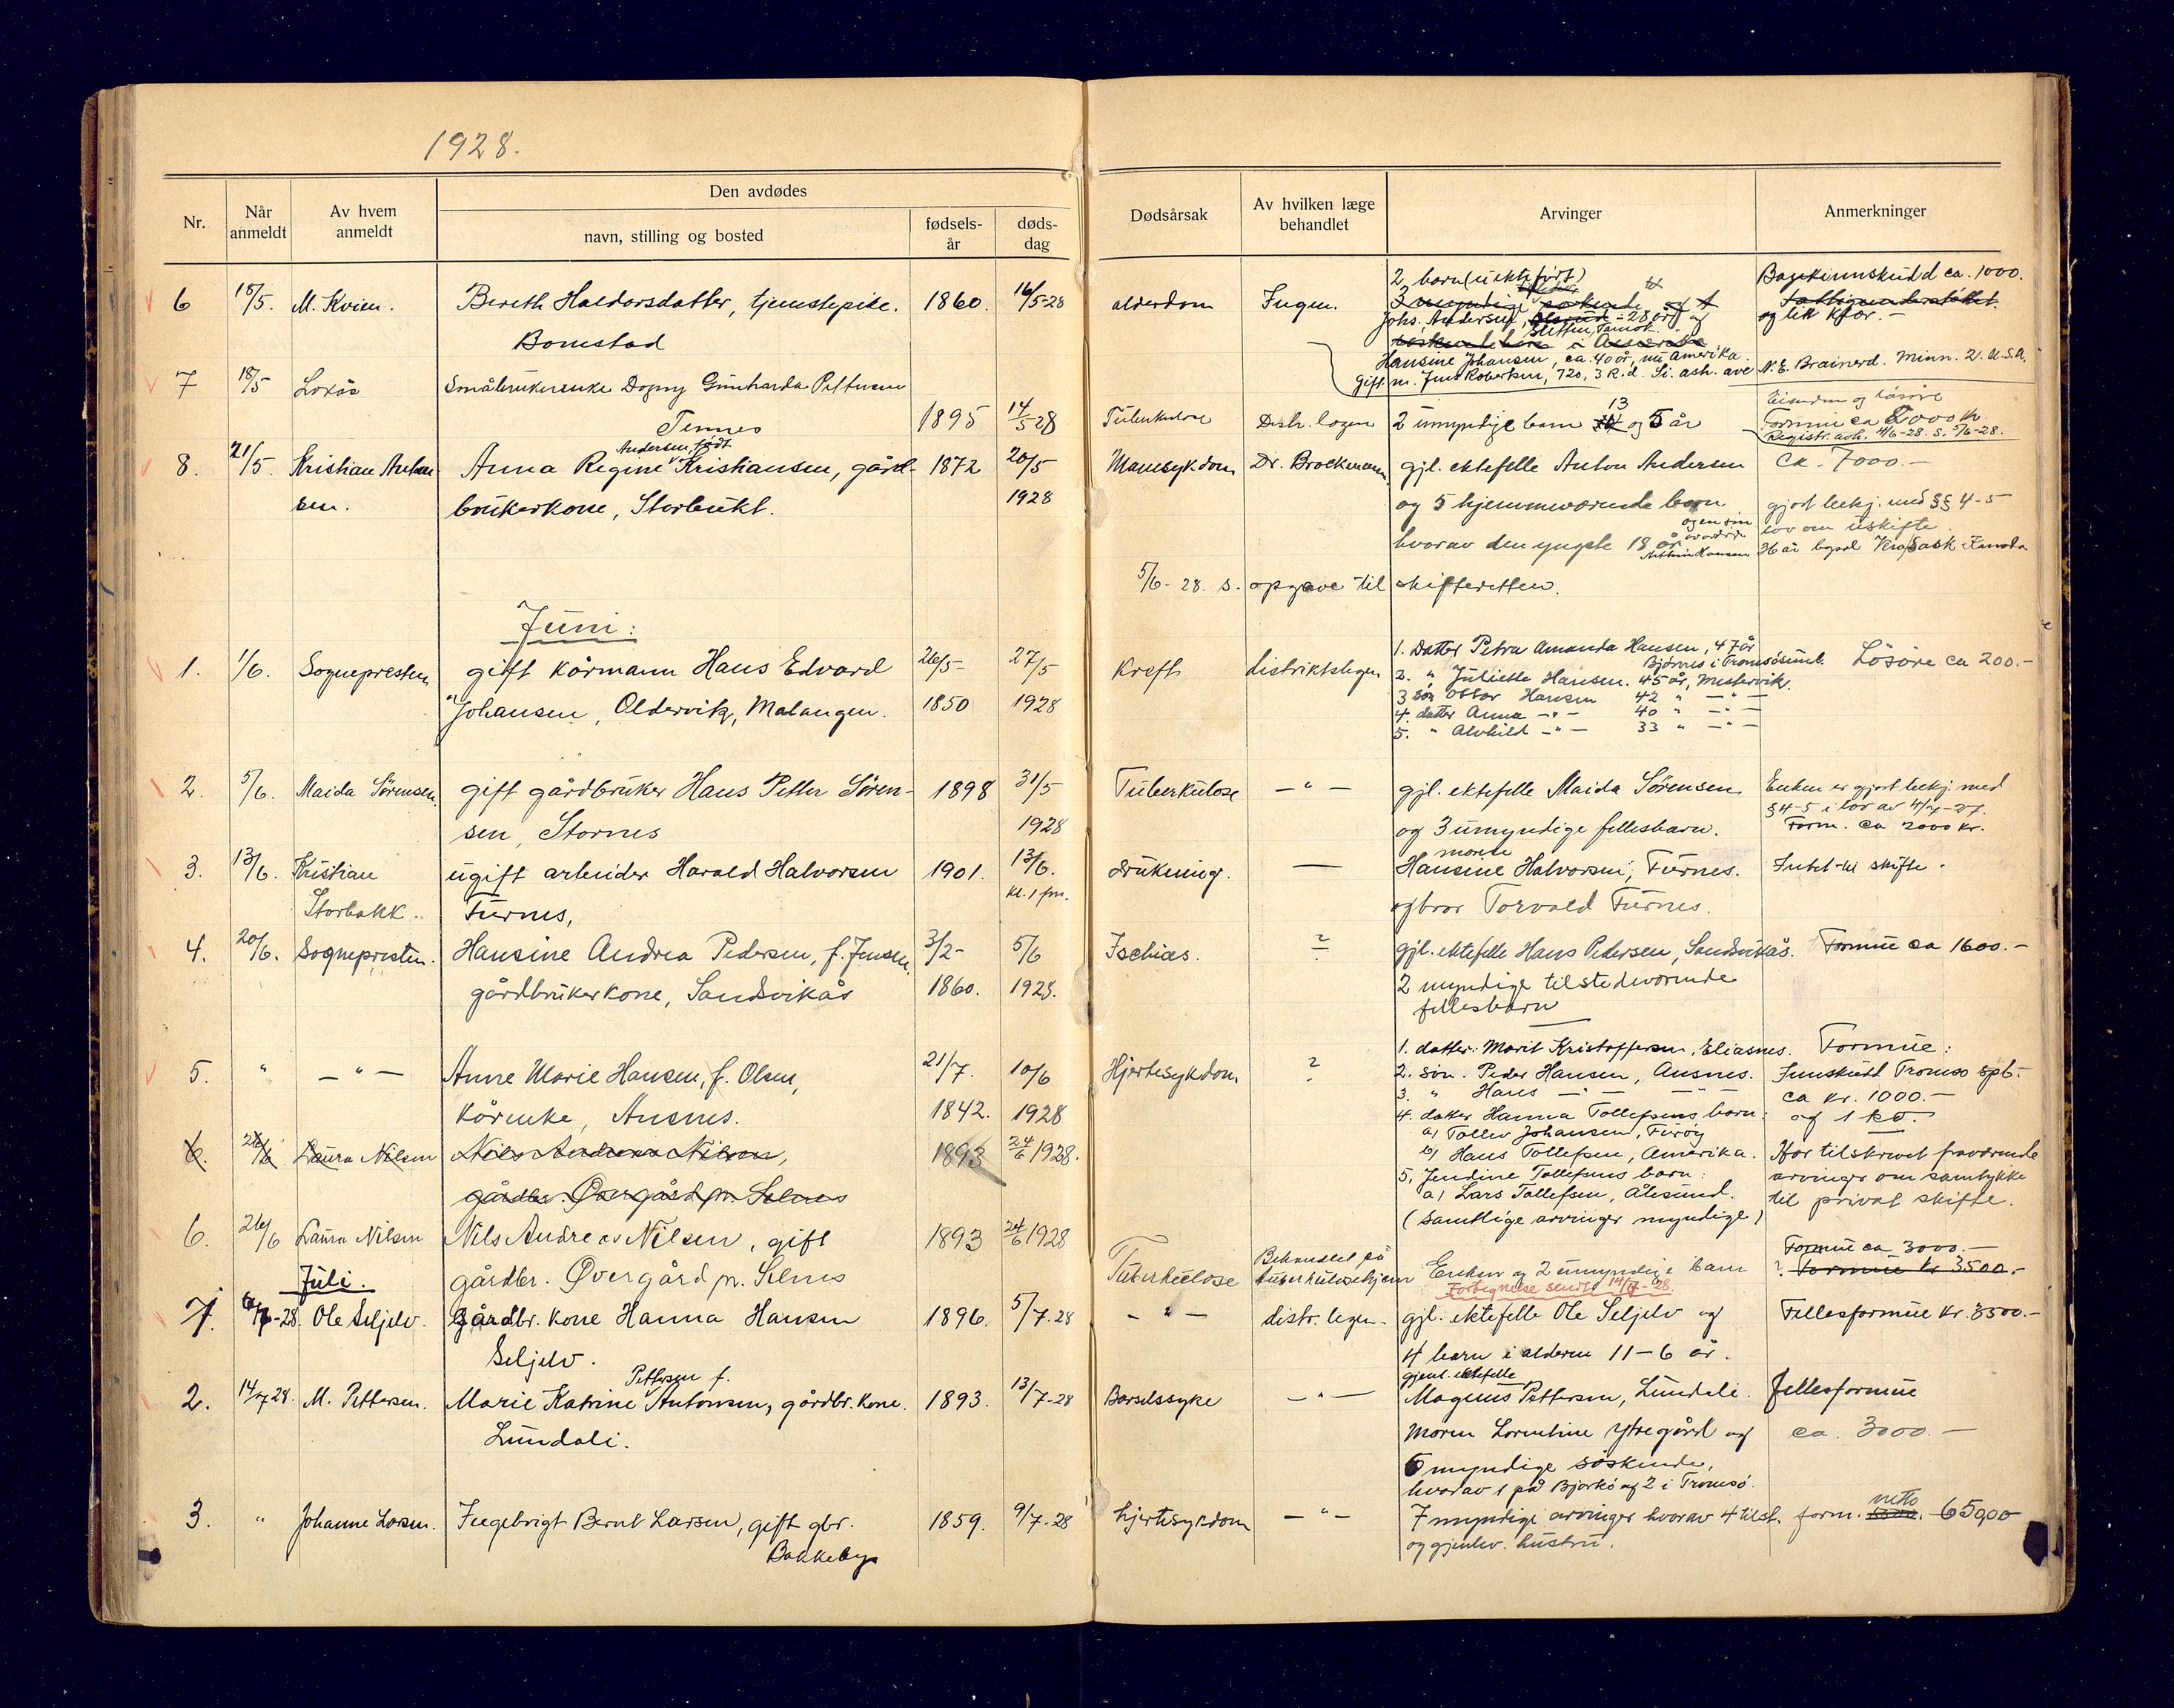 1928.
Nr.
Når anmeldt
Av hvem anmeldt
Den avdødes
navn, stilling og bosted
fødsels-år
døds-dag
Dødsårsak
Av hvilken læge behandlet
Arvinger
Anmerkninger
6 18/5. M. Kvien. Bereth Haldorsdatter, tjenestepike. 1860. 16/5-28 alderdom Ingen. 2 barn (uekte født) Bankinnskudd ca. 1000.
Bomstad Johs. Andersen, 28 år og og lik kjør.-
Slettm, Tamok.
Hansine Johansen, ca. 40 år, nu Amerika.
gift m. Jens Robertsen, 720, 3 R.d. Si. ash. ave N.E. Brainerd. Minn. U.S.A.
7 18/5 Loxås Småbrukerenke Dagny Gunharda Pettersen
Tennes 1895 14/5 28 Tuberkulose Distr. legen 2 umyndige barn 13 og 5 år Eiendom og løsøre
Formue ca 8000 kr
Registr. avh. 4/6-28. S. 5/6-28.
8. 21/5. Kristian Anton Anna Regine Andersen, født Kristiansen, gård- 1872 20/5 Mavesykdom Dr. Brockmann gjl. ektefelle Anton Andersen ca. 7000.-
sen. brukerkone, Storbukt. 1928 og 5 hjemmeværende barn gjort bekj. med §§ 4-5
hvorav den yngste 18 år og en søn lov om uskifte
Arthur Hansen 36 år bopæl Sask Kanada
5/6-28. s. opgave til skifteretten.
Juni:
1. 1/6. Sognepresten gift kårmann Hans Edvard 26/5- 27/5 Kreft distriktslegen 1. Datter Petra Amanda Hansen, 47 år Løsøre ca 200.-
Bjørnes i Tromsøsund.
Johansen, Oldervik, Malangen. 1850 1928 2. " Juliette Hansen. 45 år, Mestervik.
3 søn Ottar Hansen 42 " -"-
4. datter Anna -"- 40 " -"-
5. " Alvhild -"- 33 " -"-
2. 5/6. Maida Sørensen gift gårdbruker Hans Petter Søren- 1898 31/5 Tuberkulose -"- gjl. ektefelle Maida Sørensen Enken er gjort bekj. med
§ 4-5 i lov av 4/7-27.
sen, Stornes 1928 og 3 umyndige fellesbarn. Form. ca 2000 kr.
3. 13/6. Kristian ugift arbeider Harald Halvorsen 1901. 13/6. drukning. — moren Hansine Halvorsen, Furnes. Intet til skifte.
Storbakk. Furnes, kl. 1 fm. og bror Torvald Furnes.
4. 20/6. Sognepresten. Hansine Andrea Pedersen, f. Jensen 3/2- 5/6 Ischias. ? gjl. ektefelle Hans Pedersen, Sandvikås. Formue ca 1600.-
gårdbrukerkone, Sandvikås 1860. 1928. 2 myndige tilstedeværende
fellesbarn
5. " -"- Anne Marie Hansen, f. Olsen, 21/7. 10/6 Hjertesykdom. ? 1. datter: Marit Kristoffersen, Eliasnes. Formue:
2. søn. Peder Hansen, Ausnes. Innskudd Tromsø spb.
kårenke, Ausnes. 1842. 1928 3. " Hans -"- -"- ca kr. 1000.-
4. datter Hanna Tollefsens barn: og 1 ko.
a) Tollev Johansen, Furøy
6. 26/6 Laura Nilsen Nils Andreas Nilsen, 1893 24/6 1928. b) Hans Tollefsen, Amerika. Har tilskrevet fraværende
5. Jendine Tollefsens barn: arvinger om samtykke
gårdbr. Øvergård pr. Selnes a) Lars Tollefsen, Ålesund. til privat skifte.
(samtlige arvinger myndige)
6. 26/6 Laura Nilsen Nils Andreas Nilsen, gift 1893 24/6 1928
gårdbr. Øvergård pr. Selnes Tuberkulose Behandlet på tuberkulosehjem Enken og 2 umyndige barn Formue ca 3000.-
? Formue kr 3500.-
Fortegnelse sendt 14/7-28.
Juli.
1. 6/7-28. Ole Seljelv. Gårdbr. kone Hanna Hansen 1896. 5/7-28 -"- distr. legen. gjl. ektefelle Ole Seljelv og Fellesformue kr. 3500.-
Seljelv. 4 barn i alderen 11-6 år.
2. 14/7 28. M. Pettersen. Marie Katrine Pettersen f. Antonsen, gårdbr. kone. 1893. 13/7-28 Barselssyke -"- gjenl. ektefelle Magnus Pettersen, Lundeli. Fellesformue
Lundali. Moren Lorentine Ytregård og ca. 3000.-
6 myndige søskende,
hvorav 1 på Bjarkø og 2 i Tromsø.
3. " Johanne Larsen. Ingebrigt Bernt Larsen, gift gbr. 1859. 9/7-28 hjertesykdom -"- 7 myndige arvinger hvorav 4 tilst. form. netto 6500
Bakkeby og gjenlev. hustru.